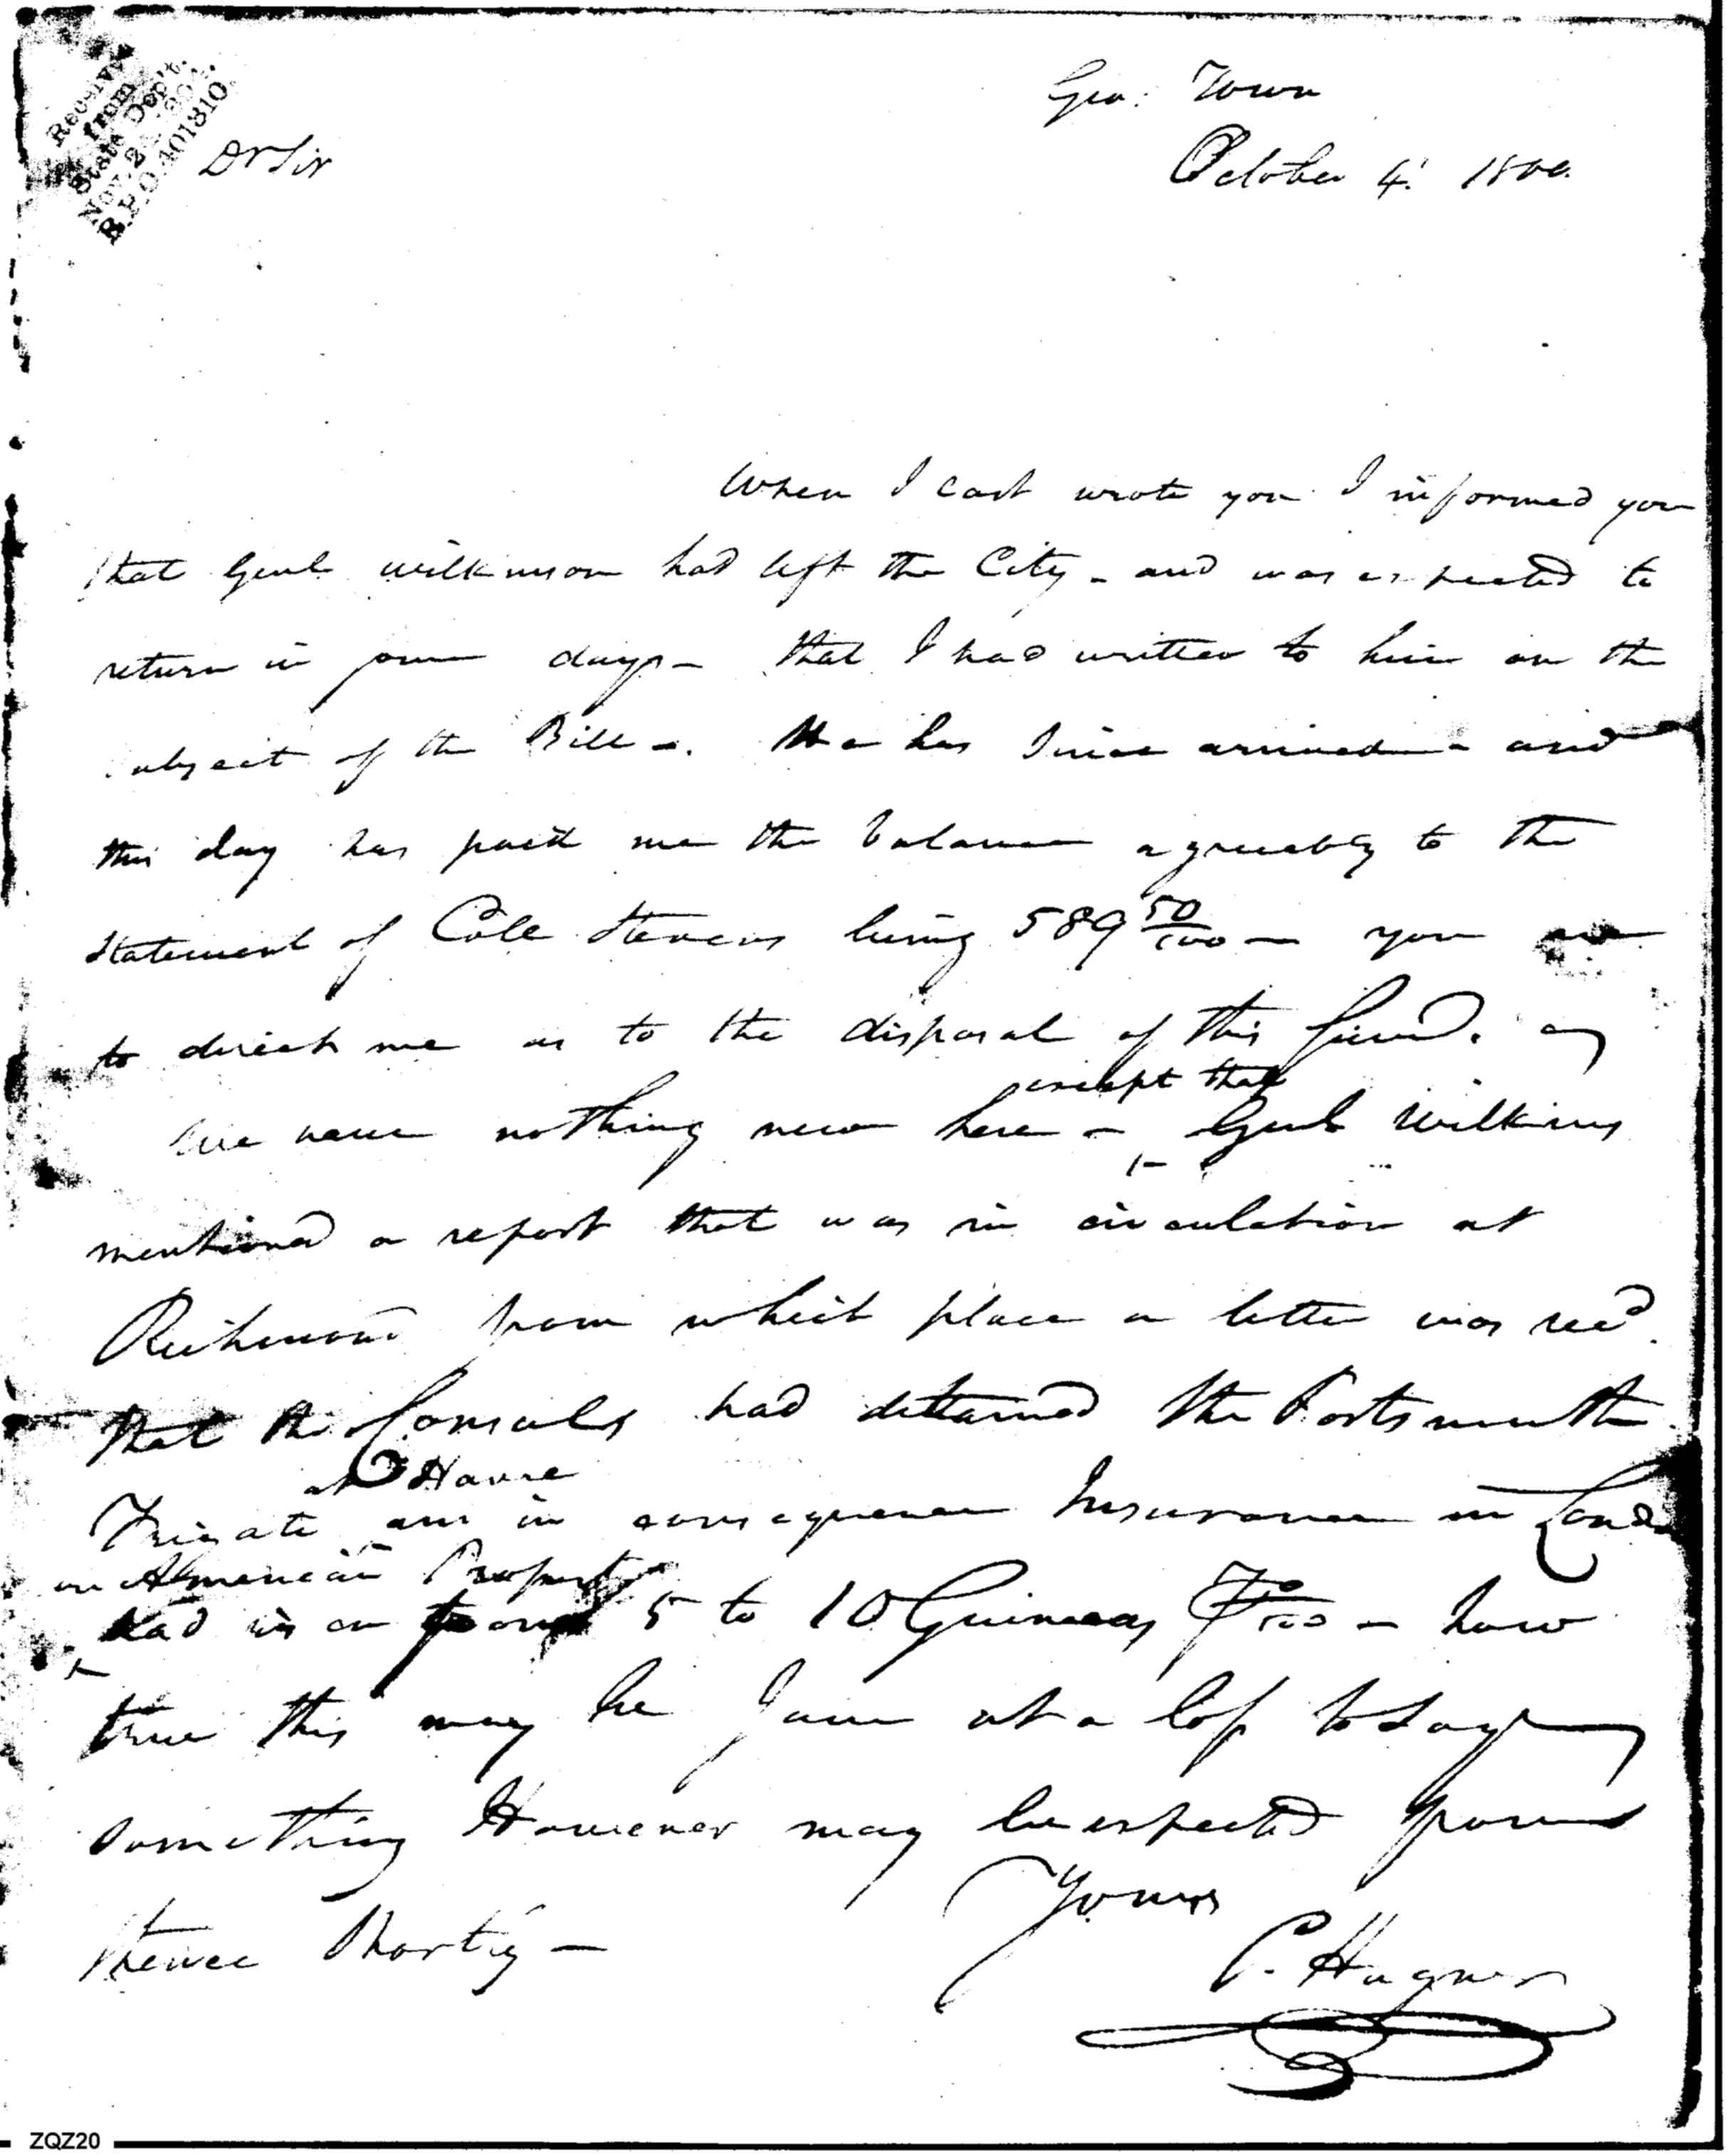 Received
from
State Dep't.
Nov. 2
R.P.O. 401310.
Geo: Town
October 4. 1800.
Dr Sir
When I last wrote you I informed you
that Genl Wilkinson had left the City - and was expected to
return in some days - that I had written to him on the
subject of the Bill -. He has since arrived - and
this day has paid me the balance agreeably to the
statement of Colo Stevens being 589 50/100 - you are
to direct me as to the disposal of this fund.
except that
We have nothing new here - Genl Wilkins
mentioned a report that was in circulation at
Richmond from which place a letter was recd.
that the Consuls had detained the Portsmouth
at Havre
Frigate and in consequence Insurance in London
on American Property
had risen from 5 to 10 Guineas P 100 - how
true this may be I am at a loss to say
something However may be expected from
thence shortly -
Yours
P. Hagner
ZQZ20